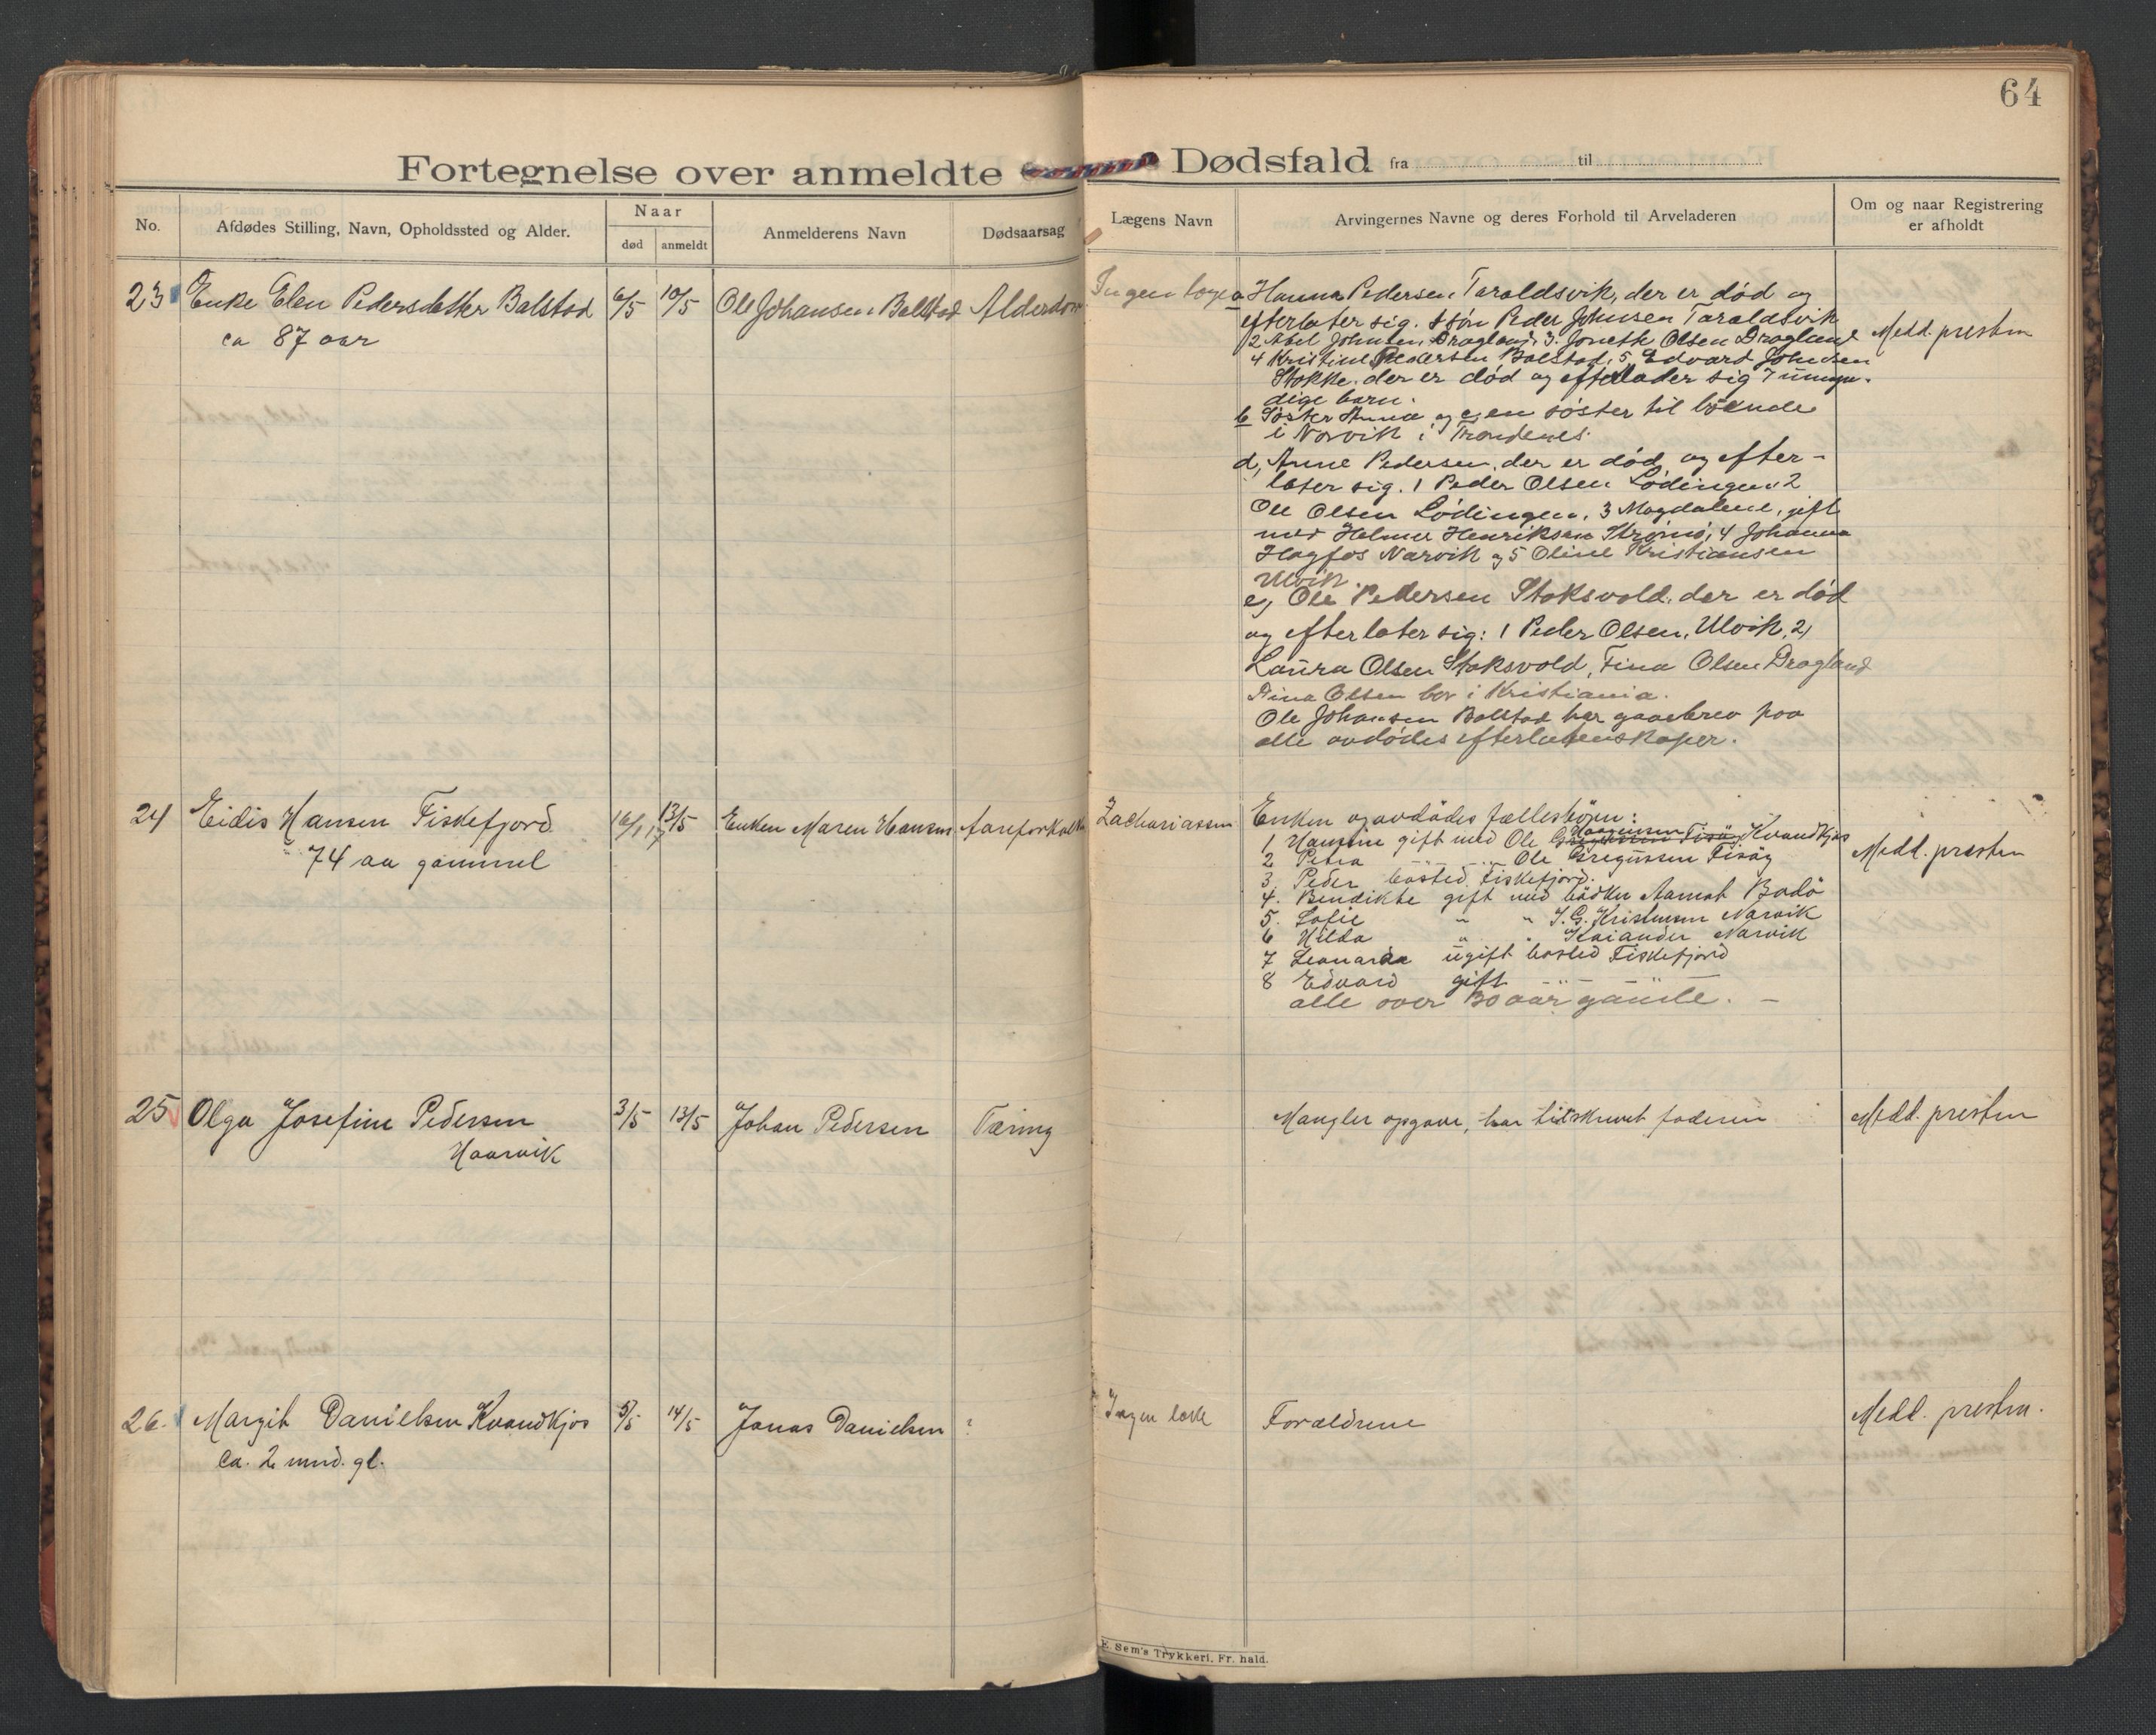 64
Fortegnelse over anmeldte Dødsfald fra til
No.
Afdødes Stilling, Navn, Opholdssted og Alder.
Naar
død
anmeldt
Anmelderens Navn
Dødsaarsag
Lægens Navn
Arvingernes Navne og deres Forhold til Arveladeren
Om og naar Registrering
er afholdt
23 Enke Elen Pedersdatter Balstad 6/5 10/5 Ole Johansen Balstad Alderdom
ca 87 aar
Ingen læge
a Hanna Pedersen Taraldsvik, der er død og
efterlater sig. 1 søn Peder Johnsen Taraldsvik
2 Abel Johnsen, Dragland, 3. Joneth Olsen Dragland
4 Kristine Pedersen Balstad, 5, Edvard Johnsen
Stokke. der er død og efterlader sig 7 umyn-
dige barn.
b Søster Anna og c, en søster til boende
i Norvik i Trondenes.
d, Anne Pedersen, der er død og efter-
later sig. 1 Peder Olsen Lødingen 2
Ole Olsen Lødingen, 3 Magdalene, gift
med Helmer Henriksen Strømø, 4 Johanna
Hagfos Narvik og 5 Oline Kristiansen
Ulvik.
e, Ole Pedersen Stoksvold, der er død
og efterlater sig: 1 Peder Olsen, Ulvik, 2,
Laura Olsen Stoksvold, Fina Olsen Dragland
Dina Olsen bor i Kristiania.
Ole Johansen Balstad har gavebrev paa
alle avdødes efterladenskaper.
Medd. presten
24 Eidis Hansen Fiskefjord 16/1 17 13/5 Enken Maren Hansen Aareforkalk
74 aa gammel
Zachariassen
Enken og avdødes fællesbørn:
1 Hansine gift med Ole Haagensen Kvandkjos
2 Petra " " Ole Gregussen Fisøy
3 Peder bosted Fiskefjord.
4. Bendikte gift med bødker Aamot Bodø
5. Sofie " " J. G. Kristensen Narvik
6 Hilda " " Kaiander Narvik
7 Leonarda ugift bosted Fiskefjord
8 Edvard gift "
alle over 30 aar gamle. –
Medd. presten
25 Olga Josefine Pedersen 3/5 13/5 Johan Pedersen Tæring
Haarvik
Mangler opgave, har tilskrevet faderen
Medd. presten
26. Margit Danielsen Kvandkjos 5/5 14/5 Jonas Danielsen ?
ca. 2 mnd. gl.
Ingen læke
Forældrene
Medd. presten.
E. Sem's Trykkeri, Fr. hald.